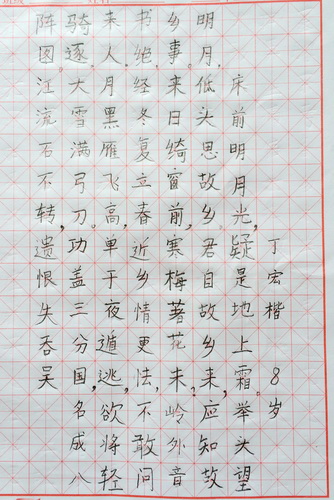 床前明月光，疑是地上霜。举头望
明月，低头思故乡。君自故乡来，应知故
乡事。来日绮窗前，寒梅著花未。岭外音
书绝，经冬复立春。近乡情更怯，不敢问
来人。月黑雁飞高，单于夜遁逃。欲将轻
骑逐，大雪满弓刀。功盖三分国，名成八
阵图。江流石不转，遗恨失吞吴
丁宏楷 8岁